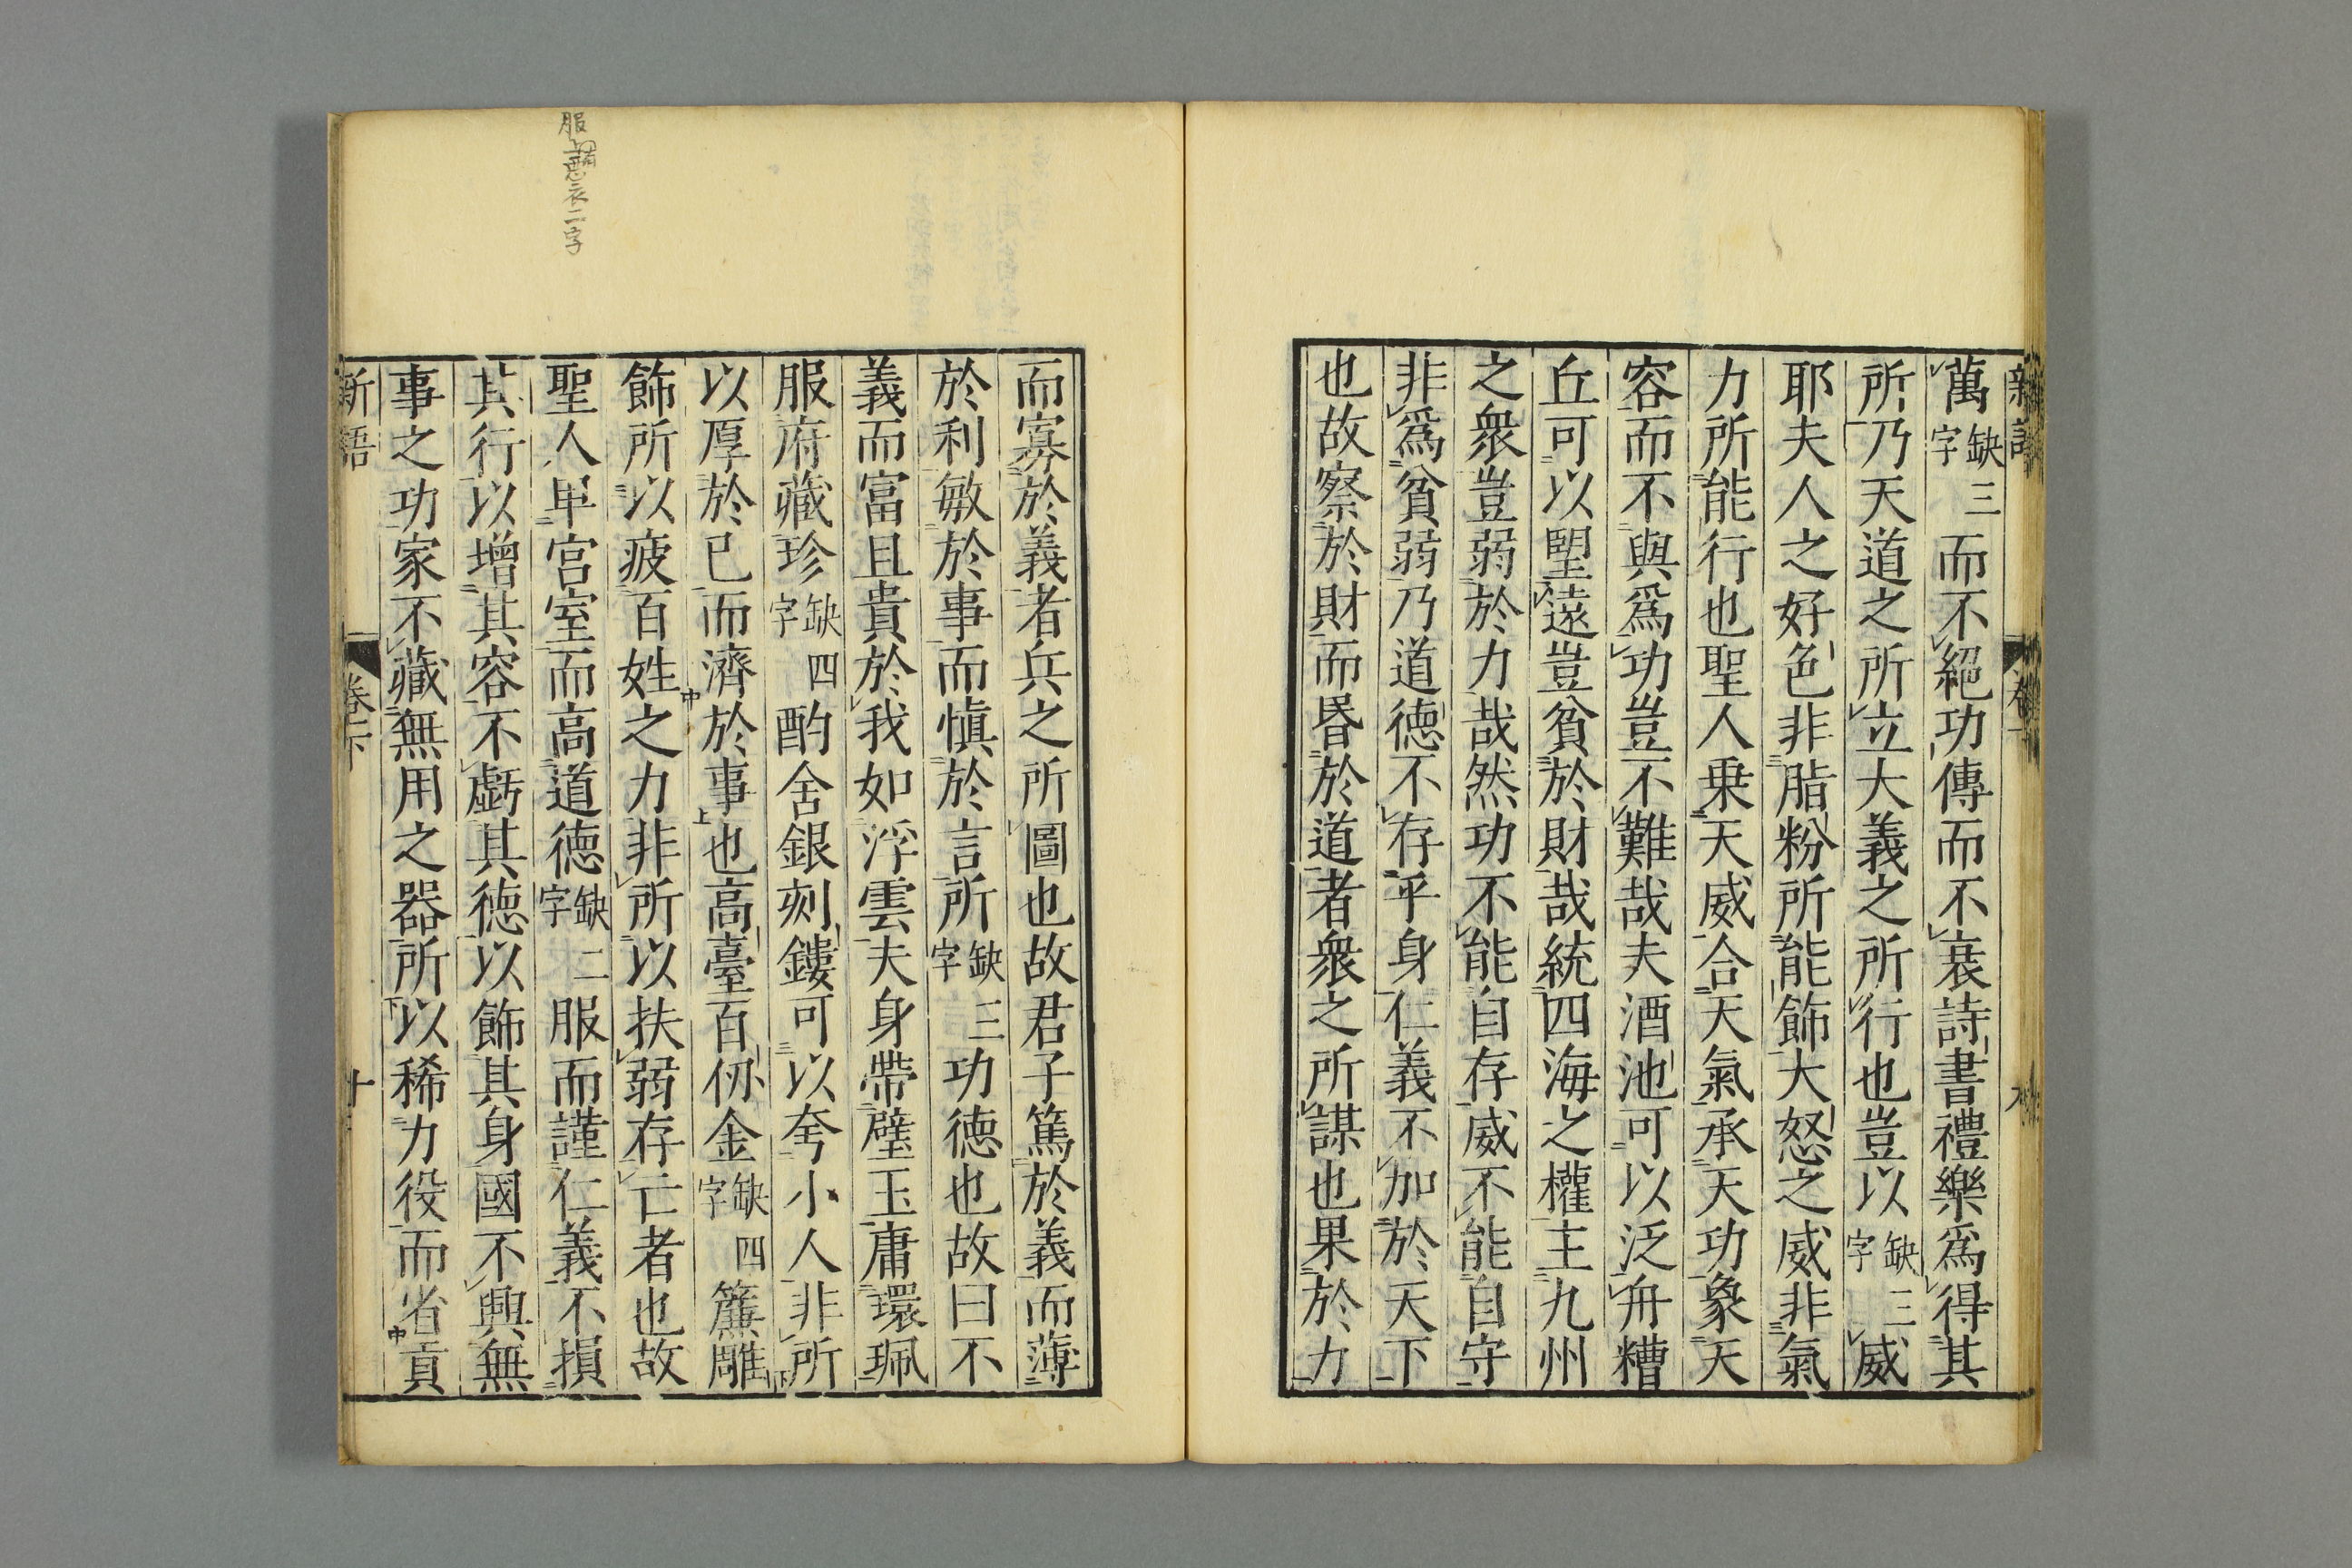 萬缺三字而不絕功傳而不衰詩書禮樂爲得其
所乃天道之所立大義之所行也豈以缺三字威
耶夫人之好色非脂粉所能飾大怒之威非氣
力所能行也聖人乗天威合天氣承天功象天
容而不與爲功豈不難哉夫酒池可以泛舟糟
丘可以望遠豈貧於財哉統四海之權主九州
之衆豈弱於力哉然功不能自存威不能自守
非爲貧弱乃道德不存乎身仁義不加於天下
也故察於財而昬於道者衆之所謀也果於力
而寡於義者兵之所圖也故君子篤於義而薄
於利敏於事而慎於言所缺三字功德也故曰不
義而富且貴於我如浮雲夫身帶璧玉庸環珮
服府藏珍缺四字酌舍銀刻鏤可以夸小人非所
以厚於已而濟於事也高臺百仞金缺四字簾雕
飾所以疲百姓之力非所以扶弱存亡者也故
聖人卑宮室而高道德缺二字服而謹仁義不損
其行以增其容不虧其德以飾其身國不興無
事之功家不藏無用之器所以稀力役而省貢
新語 卷下 十
服上
衣二字